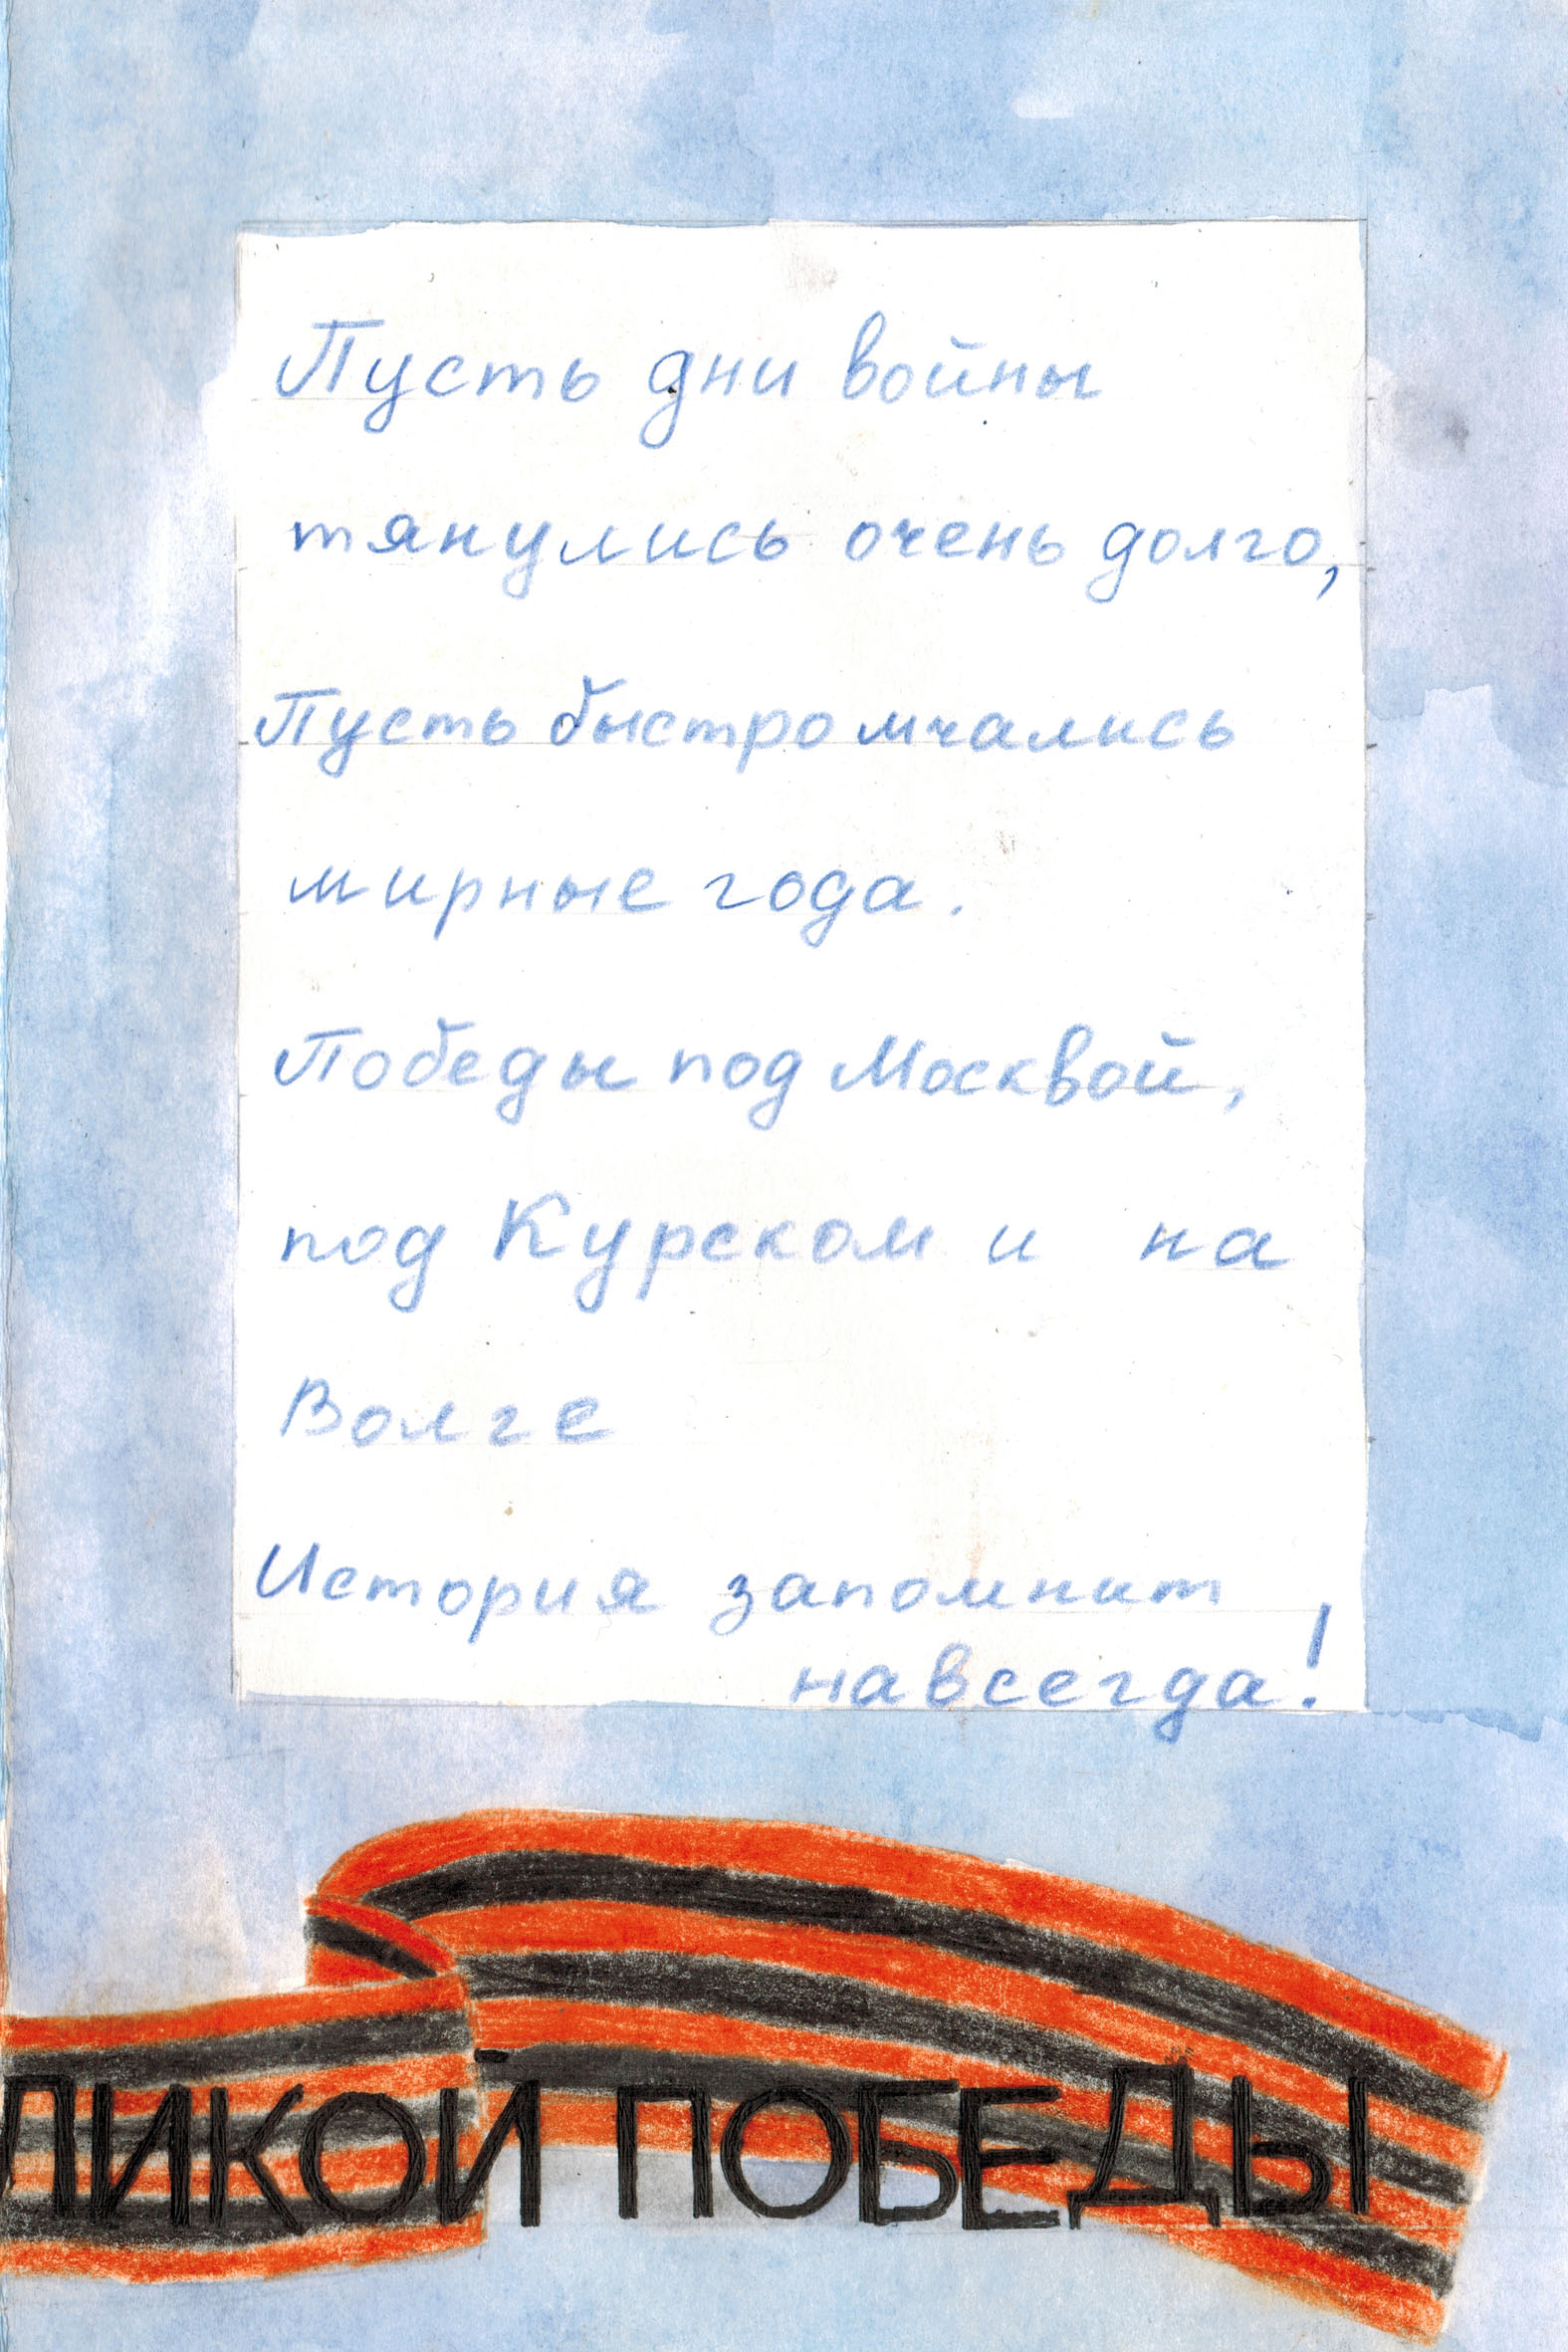 Пусть дни войны
тянулись очень долго,
Пусть быстро мчались
мирные года.
Победы под Москвой,
под Курском и на
Волге
История запомнит
навсегда!
ЛИКОЙ ПОБЕДЫ